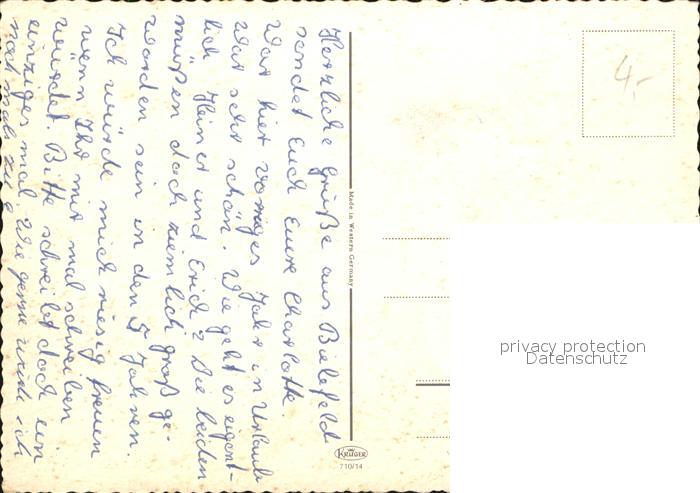 Herzliche Grüße aus Bielefeld
sendet Euch Eure Charlotte
War hier voriges Jahr in Urlaub
War sehr schön. Wie geht es eigent-
lich Heiner und Erich? Die beiden
müßen doch ziemlich groß ge-
worden sein in den 5 Jahren.
Ich würde mich riesig freuen
wenn Ihr mir mal schreiben
würdet. Bitte schreibet doch ein
einziges mal. Wie gerne würde ich
noch mal
Made in Western Germany
KRÜGER
710/14
4,-
privacy protection
Datenschutz